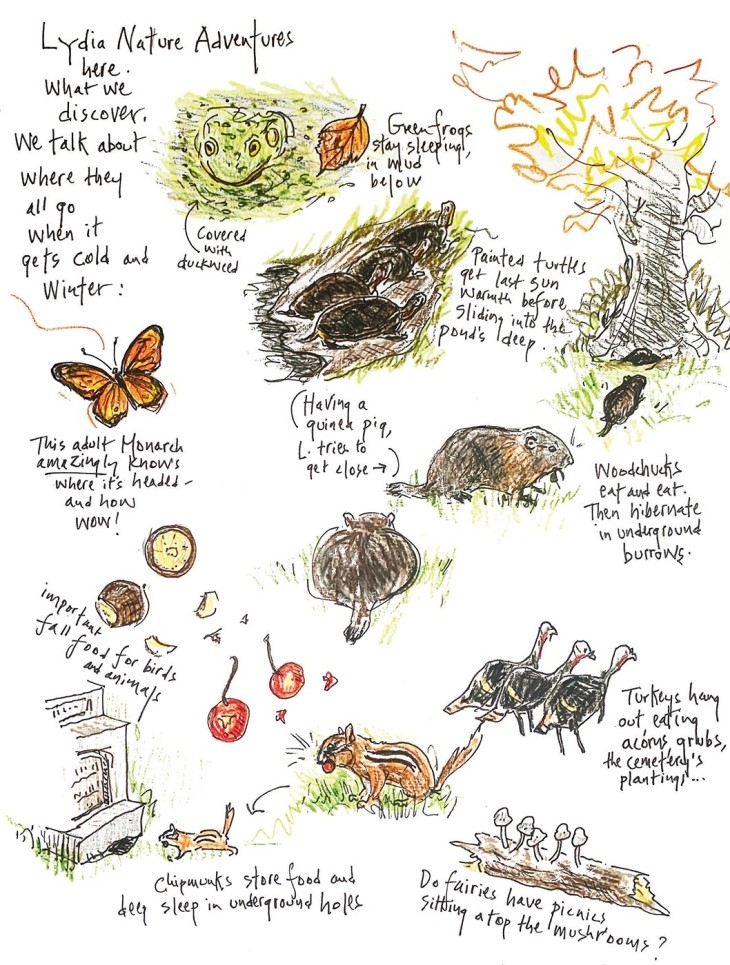 Lydia Nature Adventures
here.
What we
discover.
We talk about
where they
all go
when it
gets cold and
Winter:
Green frogs
stay sleeping,
in mud
below
Covered
with
duckweed
Painted turtles
get last sun
warmth before
sliding into the
pond's deep.
This adult Monarch
amazingly knows
where it's headed-
and how
WOW!
(Having a
guinea pig,
L. tries to
get close →)
Woodchucks
eat and eat.
Then hibernate
in underground
burrows.
important
fall food for birds
and animals
Turkeys hang
out eating
acorns, grubs,
the cemetery's
planting,...
Chipmunks store food and
deep sleep in underground holes
Do fairies have picnics
sitting atop the mushrooms?